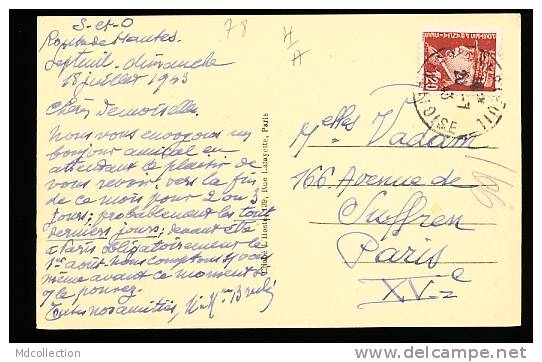 S-et-O
Route de Mantes.
Septeuil. dimanche
18 juillet 1943
78
Chères demoiselles.
Nous vous envoyons un
bonjour amical en
attendant le plaisir de
vous revoir, vers la fin
de ce mois pour 2 ou 3
jours; probablement les tout
derniers jours; devant être
à Paris obligatoirement le
1er août. Nous comptons vous
même avant ce moment si
le pouvez.
Toutes nos amitiés,
39, Rue Lafayette, Paris
1f20
SEPTEUIL
S-ET-OISE
Melles Vadam
166 Avenue de
Suffren
Paris
XVe
166
MDcollection
delcampe.net